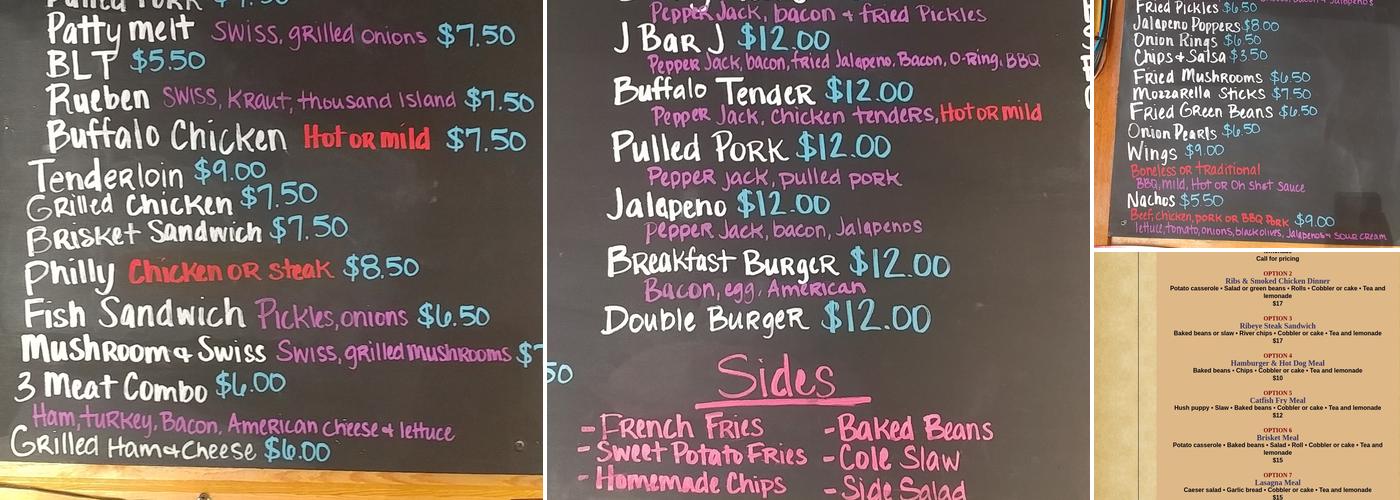 Pulled Pork
Patty melt Swiss, grilled onions $7.50
BLT $5.50
Rueben Swiss, Kraut, thousand island $7.50
Buffalo Chicken Hot or mild $7.50
Tenderloin $9.00
Grilled Chicken $7.50
Brisket Sandwich $7.50
Philly Chicken or steak $8.50
Fish Sandwich Pickles, onions $6.50
Mushroom & Swiss Swiss, grilled mushrooms
3 Meat Combo $6.00
Ham, turkey, Bacon, American cheese & lettuce
Grilled Ham & Cheese $6.00
Pepper Jack, bacon & fried Pickles
J Bar J $12.00
Pepper Jack, bacon, fried Jalapeno, Bacon, O-Ring, BBQ
Buffalo Tender $12.00
Pepper Jack, chicken tenders, Hot or mild
Pulled Pork $12.00
Pepper jack, pulled pork
Jalapeno $12.00
Pepper Jack, bacon, Jalapenos
Breakfast Burger $12.00
Bacon, egg, American
Double Burger $12.00
50
Sides
- French Fries
- Sweet Potato Fries
- Homemade Chips
- Baked Beans
- Cole Slaw
- Side Salad
Fried Pickles $6.50
Jalapeno Poppers $8.00
Onion Rings $6.50
Chips & Salsa $3.50
Fried Mushrooms $6.50
Mozzarella Sticks $7.50
Fried Green Beans $6.50
Onion Pearls $6.50
Wings $9.00
Boneless or Traditional
BBQ, mild, Hot or Oh Shot Sauce
Nachos $5.50
Beef, chicken, pork or BBQ Pork $9.00
lettuce, tomato, onions, black olives, Jalapenos & sour cream
lemonade
Call for pricing
OPTION 2
Ribs & Smoked Chicken Dinner
Potato casserole • Salad or green beans • Rolls • Cobbler or cake • Tea and
lemonade
$17
OPTION 3
Ribeye Steak Sandwich
Baked beans or slaw • River chips • Cobbler or cake • Tea and lemonade
$17
OPTION 4
Hamburger & Hot Dog Meal
Baked beans • Chips • Cobbler or cake • Tea and lemonade
$10
OPTION 5
Catfish Fry Meal
Hush puppy • Slaw • Baked beans • Cobbler or cake • Tea and lemonade
$12
OPTION 6
Brisket Meal
Potato casserole • Baked beans • Salad • Roll • Cobbler or cake • Tea and
lemonade
$15
OPTION 7
Lasagna Meal
Caeser salad • Garlic bread • Cobbler or cake • Tea and lemonade
$15